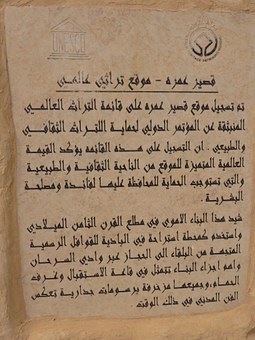 UNESCO
قصير عمره - موقع تراثي عالمي
تم تسجيل موقع قصير عمره على قائمة التراث العالمي
المنبثقة عن المؤتمر الدولي لحماية اللتراث الثقافي
والطبيعي . ان التسجيل على هذه القائمه يؤكد القيمة
العالمية المتميزة للموقع من الناحية الثقافية والطبيعية
والتي تستوجب الحماية للمحافظة عليها لفائدة ومصلحة
البشرية .
شيد هذا البناء الاموي في مطلع القرن الثامن الميلادي
واستخدم كمحطة استراحة في البادية للقوافل الرسمية
المتجهة من البلقاء الى الحجاز عبر وادي السرحان
واهم اجزاء البناء تتمثل في قاعة الاستقبال وغرف
الحمام، وجميعها مزخرفة برسومات جدارية تعكس
الفن المدني في ذلك الوقت